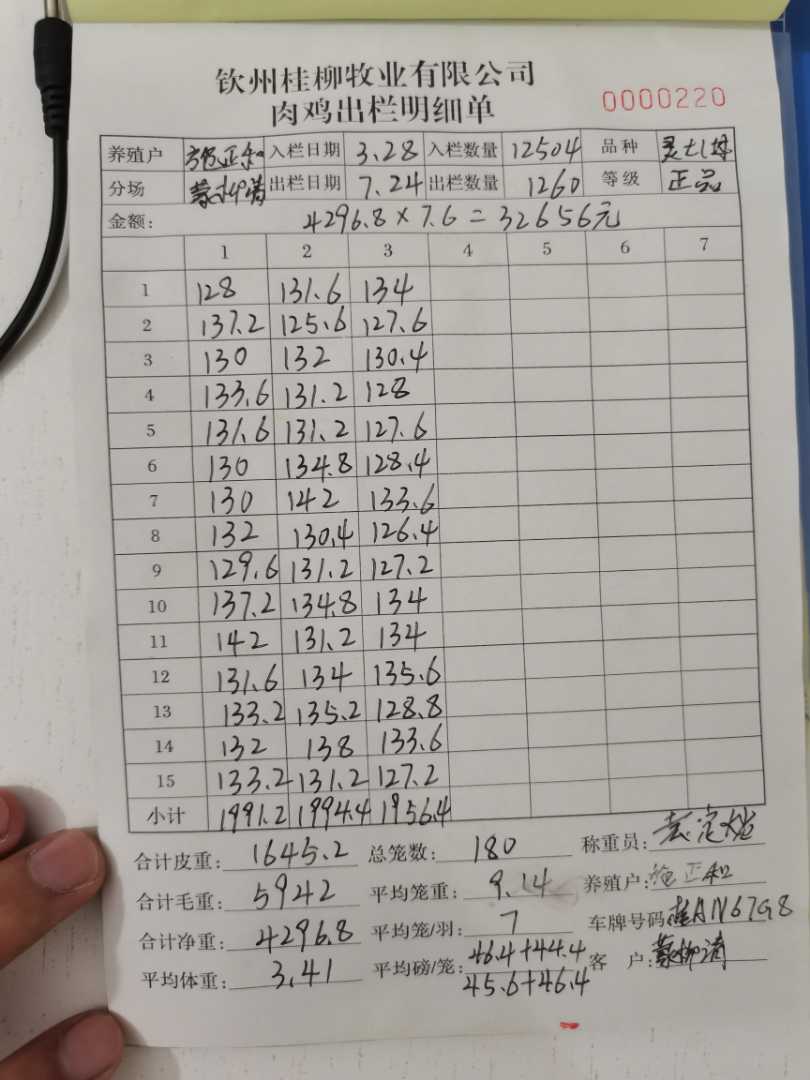 钦州桂柳牧业有限公司
肉鸡出栏明细单
0000220
养殖户 正和 入栏日期 3.28 入栏数量 12504 品种 灵
分场 蒙柳清 出栏日期 7.24 出栏数量 1260 等级 正品
金额: 4296.8 × 7.6 = 32656元
1 2 3 4 5 6 7
1 128 131.6 134
2 137.2 125.6 127.6
3 130 132 130.4
4 133.6 131.2 128
5 131.6 131.2 127.6
6 130 134.8 128.4
7 130 142 133.6
8 132 130.4 126.4
9 129.6 131.2 127.2
10 137.2 134.8 134
11 142 131.2 134
12 131.6 134 135.6
13 133.2 135.2 128.8
14 132 138 133.6
15 133.2 131.2 127.2
小计 1991.2 1994.4 1956.4
合计皮重: 1645.2 总笼数: 180 称重员:
合计毛重: 5942 平均笼重: 9.14 养殖户: 正和
合计净重: 4296.8 平均笼/羽: 7 车牌号码 桂AN67G8
平均体重: 3.41 平均磅/笼: 46.4+44.4 客 户: 蒙柳清
45.6+46.4